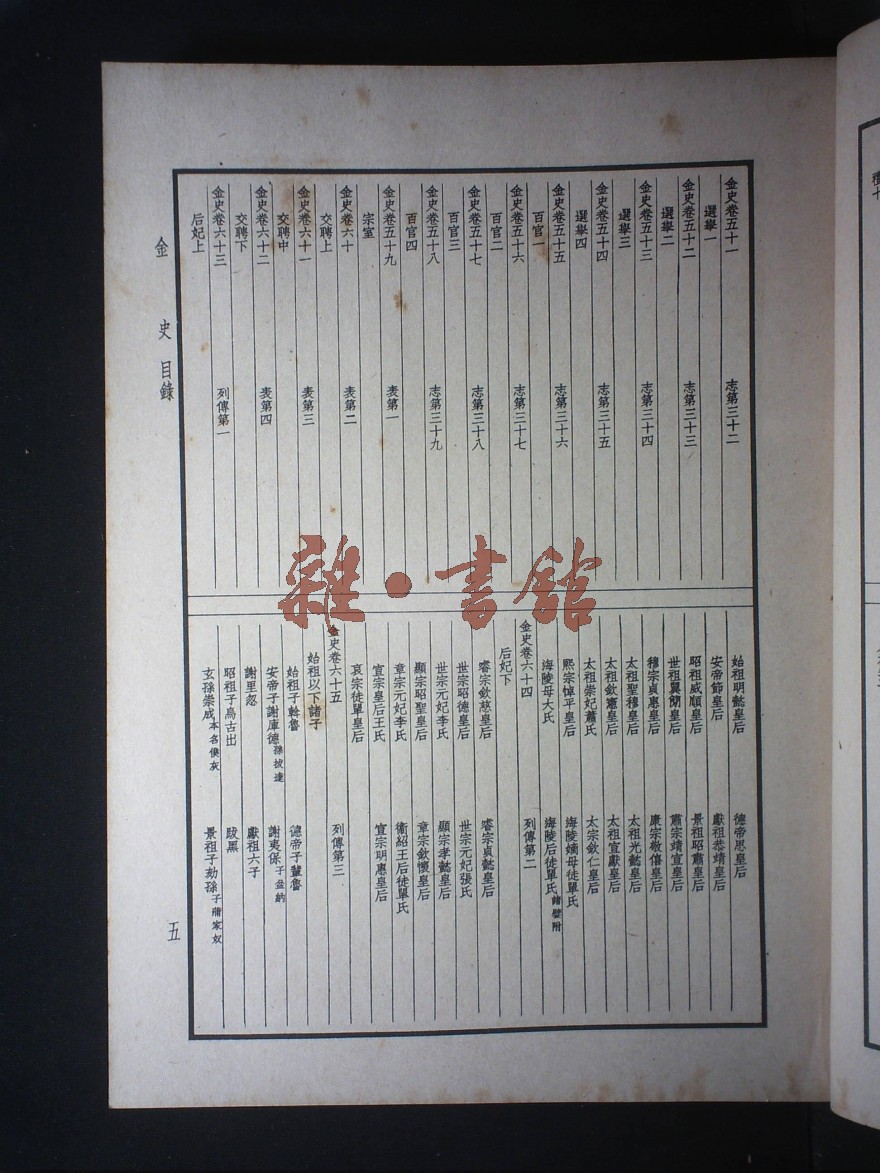 金史卷五十一　志第三十二
選舉一
金史卷五十二　志第三十三
選舉二
金史卷五十三　志第三十四
選舉三
金史卷五十四　志第三十五
選舉四
金史卷五十五　志第三十六
百官一
金史卷五十六　志第三十七
百官二
金史卷五十七　志第三十八
百官三
金史卷五十八　志第三十九
百官四
金史卷五十九　表第一
宗室
金史卷六十　表第二
交聘上
金史卷六十一　表第三
交聘中
金史卷六十二　表第四
交聘下
金史卷六十三　列傳第一
后妃上
始祖明懿皇后　德帝思皇后
安帝節皇后　獻祖恭靖皇后
昭祖威順皇后　景祖昭肅皇后
世祖翼簡皇后　肅宗靖宣皇后
穆宗貞惠皇后　康宗敬僖皇后
太祖聖穆皇后　太祖光懿皇后
太祖欽憲皇后　太祖宣獻皇后
太祖崇妃蕭氏　太宗欽仁皇后
熙宗悼平皇后　海陵嫡母徒單氏
海陵母大氏　海陵后徒單氏諸嬖附
金史卷六十四　列傳第二
后妃下
睿宗欽慈皇后　睿宗貞懿皇后
世宗昭德皇后　世宗元妃張氏
世宗元妃李氏　顯宗孝懿皇后
顯宗昭聖皇后　章宗欽懷皇后
章宗元妃李氏　衛紹王后徒單氏
宣宗皇后王氏　宣宗明惠皇后
哀宗徒單皇后
金史卷六十五　列傳第三
始祖以下諸子
始祖子斡魯　德帝子輩魯
安帝子謝庫德孫拔達　謝夷保子盆納
謝里忽　獻祖六子
昭祖子烏古出　跋黑
玄孫崇成本名僕灰　景祖子劾孫子蒲家奴
金　史　目錄
五
雜·書館